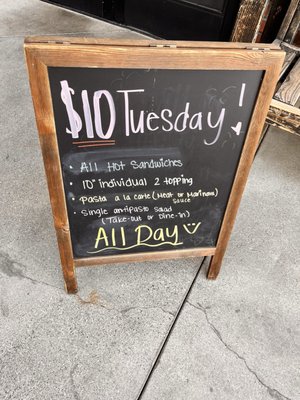 $10 Tuesday!
• All Hot Sandwiches
• 10" individual 2 topping
• Pasta a la carte (Meat or Marinara)
Sauce
• Single antipasto salad
(Take-out or Dine-in)
All Day